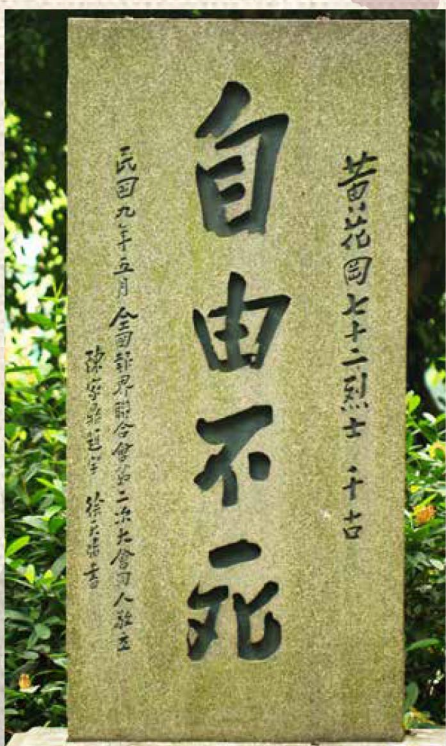 黃花岡七十二烈士 千古
自由不死
民國九年五月 全國報界聯合會第二次大會同人敬立
陳家鼎題字 徐天深書